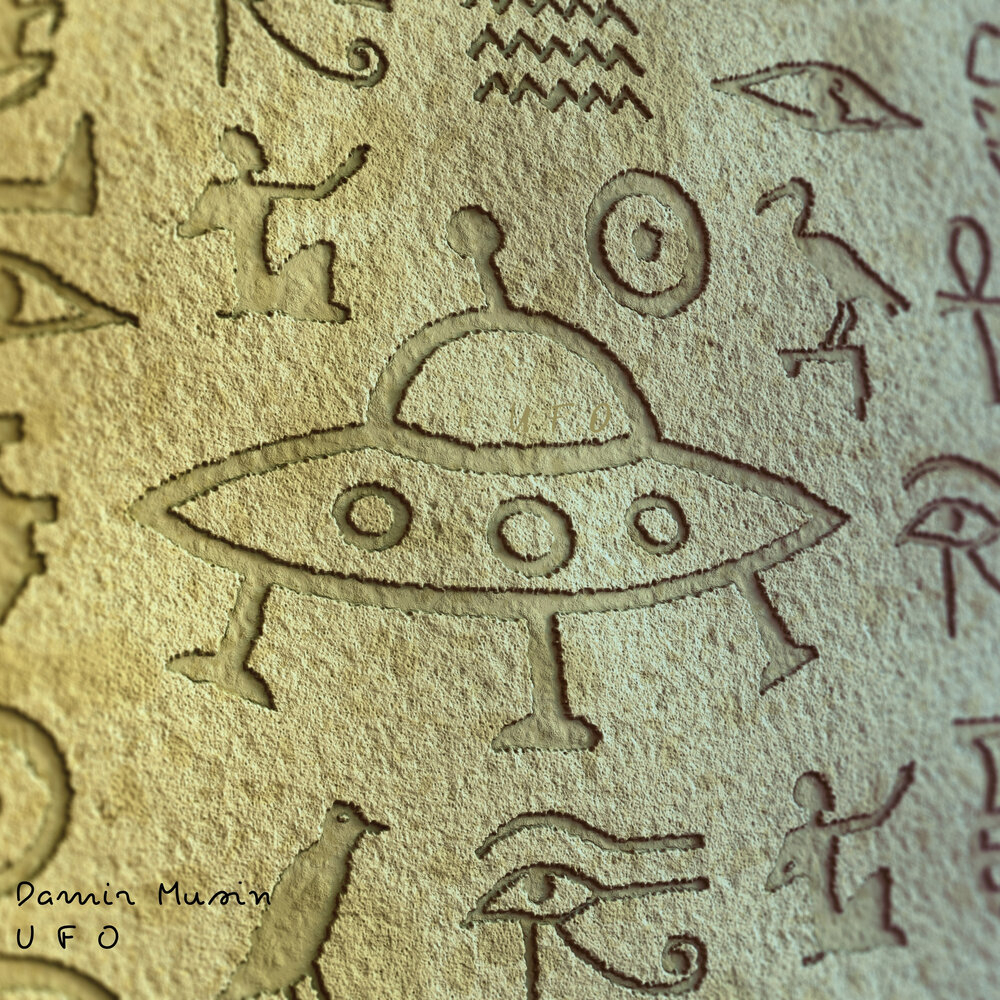 U.F.O
Damir Musin
U F O